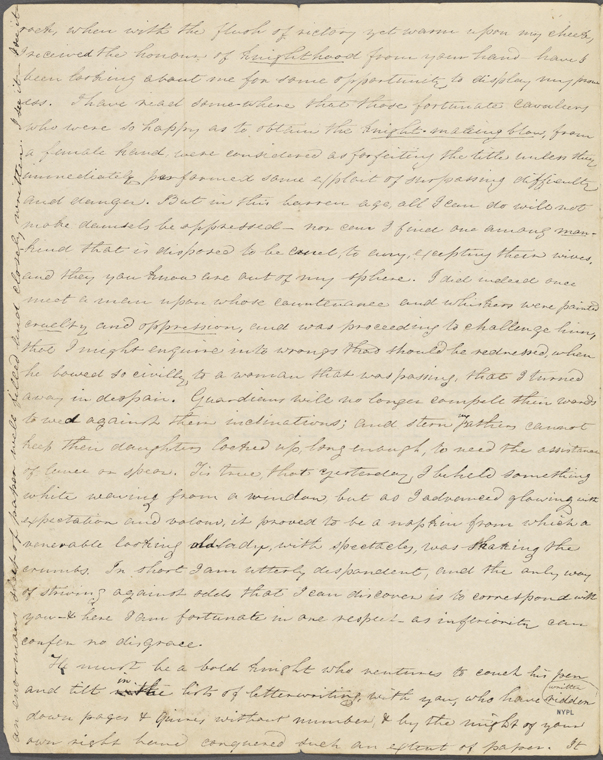 rock, when with the flush of victory yet warm upon my cheek,
received the honour of knighthood from your hand – have I
been looking about me for some opportunity to display my prow
ess. I have read somewhere that those fortunate Cavaliers
who were so happy as to obtain the knight-making blow, from
a female hand, were considered as forfeiting the title unless they
immediately performed some exploit of surpassing difficulty
and danger. But in this barren age, all I can do will not
make damsels be oppressed – nor can I find one among man-
kind that is disposed to be cruel, to any, excepting their wives,
and they you know are out of my sphere. I did indeed once
meet a man upon whose countenance and whiskers were painted
cruelty and oppression, and was proceeding to challenge him,
that I might enquire into wrongs that should be redressed, when
he bowed so civilly to a woman that was passing, that I turned
away in despair. Guardians will no longer compell their wards
to wed against their inclinations; and stern fathers cannot
keep their daughters locked up, long enough, to need the assistance
of lance or spear. Tis true, that yesterday I beheld something
white waving from a window, but as I advanced glowing with
expectation and valour, it proved to be a napkin from which a
venerable looking old lady, with spectacles, was shaking the
crumbs. In short I am utterly despondent, and the only way
of striving against odds that I can discover is to correspond with
you – & here I am fortunate in one respect – as inferiority can
confer no disgrace.
He must be a bold knight who ventures to couch his pen
and tilt in the lists of letterwriting, with you, who have written ridden
down pages & quires without number, & by the might of your
own right hand conquered such an extent of paper. It
an enormous sheet of paper well filled and closely written. I see it
NYPL